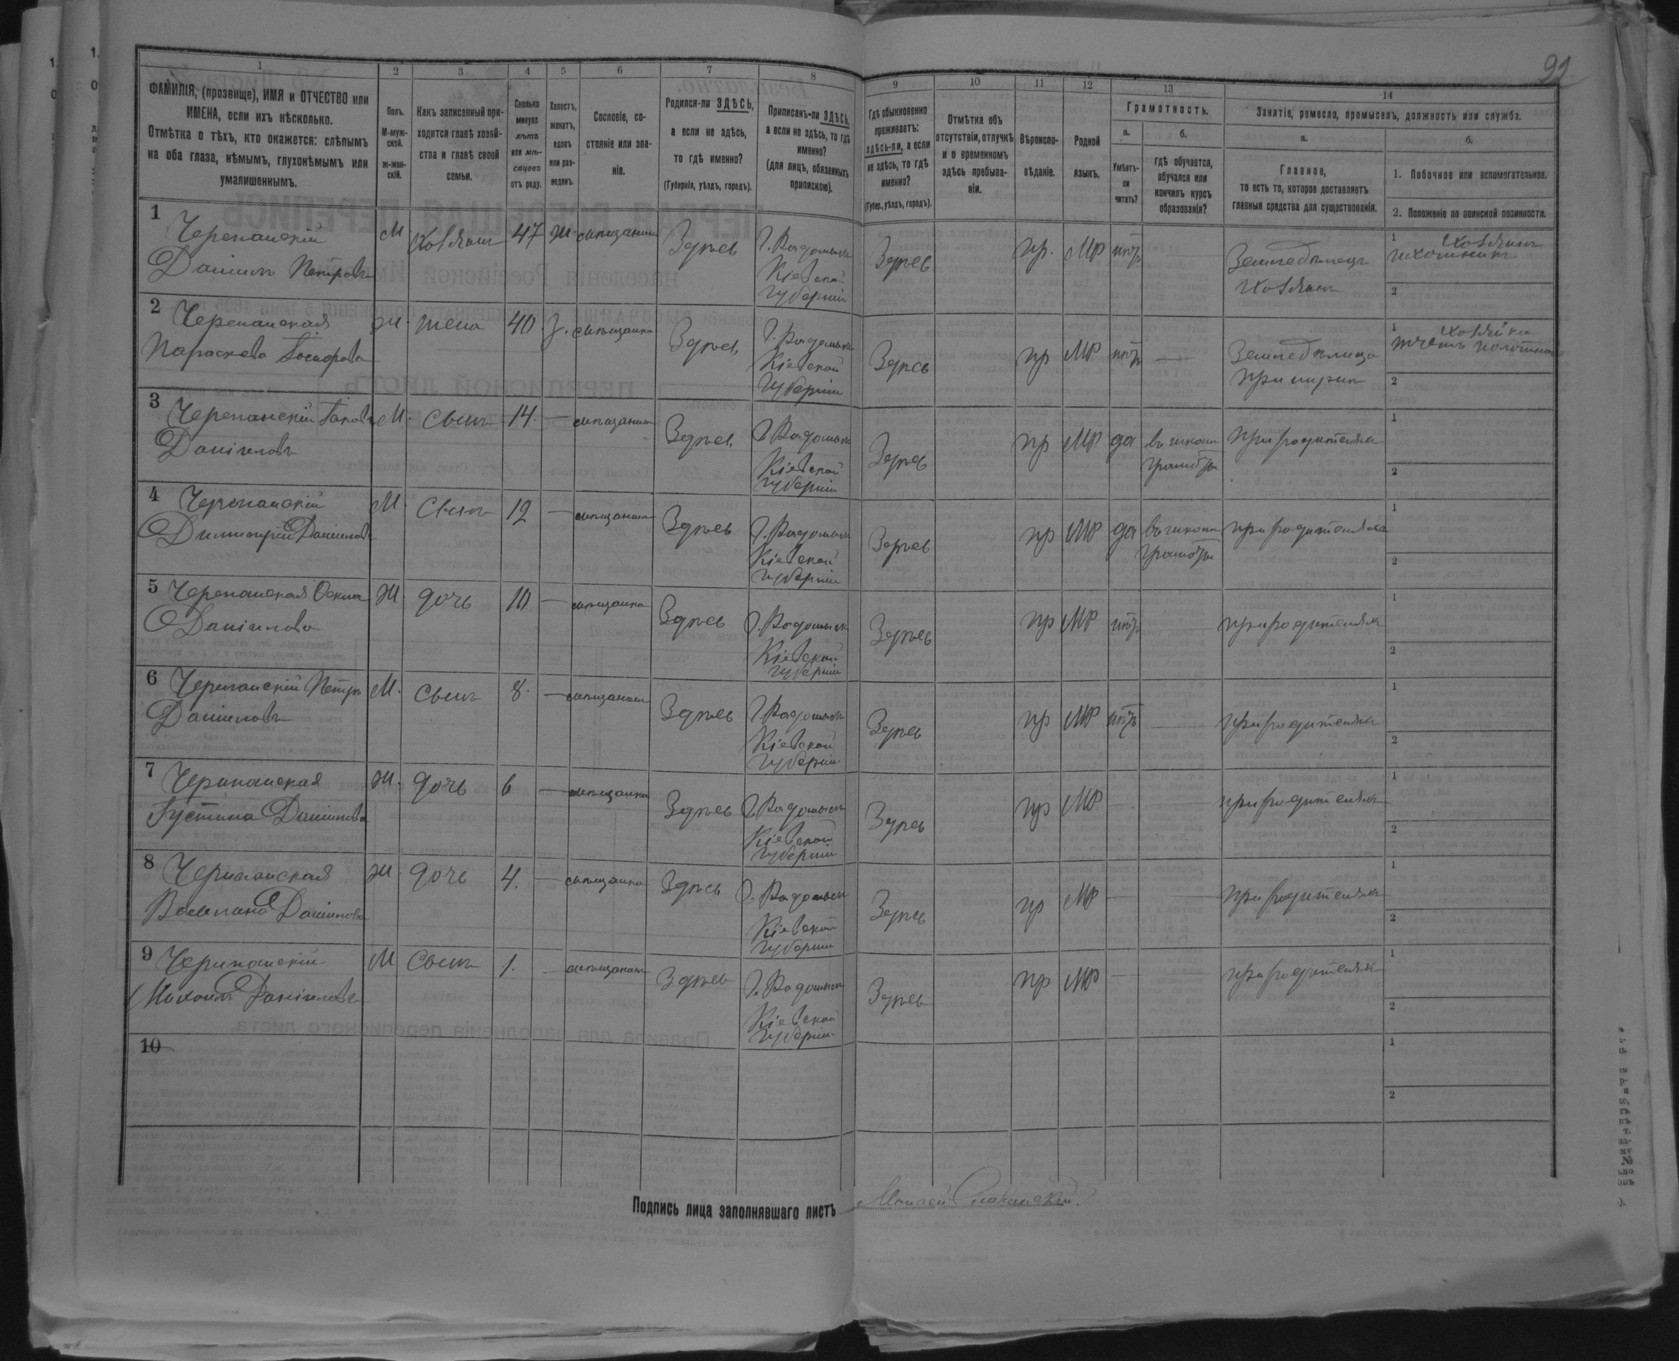 91
1 2 3 4 5 6 7 8 9 10 11 12 13 14
ФАМИЛІЯ, (прозвище), ИМЯ и ОТЧЕСТВО или
ИМЕНА, если ихъ нѣсколько.
Отмѣтка о тѣхъ, кто окажется: слѣпымъ
на оба глаза, нѣмымъ, глухонѣмымъ или
умалишеннымъ.
Полъ.
М-муж-
ской.
Ж-жен-
скій.
Какъ записанный при-
ходится главѣ хозяй-
ства и главѣ своей
семьи.
Сколько
минуло
лѣтъ
или мѣ-
сяцевъ
отъ роду.
Холостъ,
женатъ,
вдовъ
или раз-
веденъ.
Сословіе, со-
стояніе или зва-
ніе.
Родился-ли ЗДѢСЬ,
а если не здѣсь,
то гдѣ именно?
(Губернія, уѣздъ, городъ).
Приписанъ-ли ЗДѢСЬ,
а если не здѣсь, то гдѣ
именно?
(для лицъ, обязанныхъ
припискою).
Гдѣ обыкновенно
проживаетъ:
здѣсь-ли, а если
не здѣсь, то гдѣ
именно?
(Губер., уѣздъ, городъ).
Отмѣтка объ
отсутствіи, отлучкѣ
и о временномъ
здѣсь пребыва-
ніи.
Вѣроиспо-
вѣданіе.
Родной
языкъ.
Грамотность.
а.
Умѣетъ-
ли
читать?
б.
гдѣ обучается,
обучался или
кончилъ курсъ
образованія?
Занятіе, ремесло, промыселъ, должность или служба.
а.
Главное,
то есть то, которое доставляетъ
главныя средства для существованія.
б.
1. Побочное или вспомогательное.
2. Положеніе по воинской повинности.
1 Черепанскій
Даніилъ Петровъ
М Хозяинъ 47 ж. мѣщанинъ Здѣсь Г. Радомысль
Кіевской
губерніи
Здѣсь пр. МР нѣтъ
Земледѣлецъ
Хозяинъ
1 Хозяинъ
2
2 Черепанская
Параскева
Ж жена 40 З. мѣщанка Здѣсь Г. Радомысль
Кіевской
губерніи
Здѣсь пр МР нѣтъ —
Земледѣлица
при мужѣ
1 Хозяйка
2
3 Черепанскій Яковъ
Даніиловъ
М. Сынъ 14. — мѣщанинъ Здѣсь Г. Радомысль
Кіевской
губерніи
Здѣсь пр МР да въ школѣ
грамоты
при родителяхъ
1
2
4 Черепанскій
Димитрій Даніиловъ
М. Сынъ 12 — мѣщанинъ Здѣсь Г. Радомысль
Кіевской
губерніи
Здѣсь пр МР да въ школѣ
грамоты
при родителяхъ
1
2
5 Черепанская
Даніилова
Ж дочь 10 — мѣщанка Здѣсь Г. Радомысль
Кіевской
губерніи
Здѣсь пр МР нѣтъ при родителяхъ
1
2
6 Черепанскій Петръ
Даніиловъ
М. сынъ 8. — мѣщанинъ Здѣсь Г. Радомысль
Кіевской
губерніи
Здѣсь пр МР нѣтъ — при родителяхъ
1
2
7 Черепанская
Іустина Даніилова
Ж. дочь 6 — мѣщанка Здѣсь Г. Радомысль
Кіевской
губерніи
Здѣсь пр МР — при родителяхъ
1
2
8 Черепанская
Даніилова
Ж. дочь 4. — мѣщанка Здѣсь Г. Радомысль
Кіевской
губерніи
Здѣсь пр МР — — при родителяхъ
1
2
9 Черепанскій
Даніиловъ
М Сынъ 1. — мѣщанинъ Здѣсь Г. Радомысль
Кіевской
губерніи
Здѣсь пр МР — при родителяхъ
1
2
10
1
2
Подпись лица заполнявшаго листъ